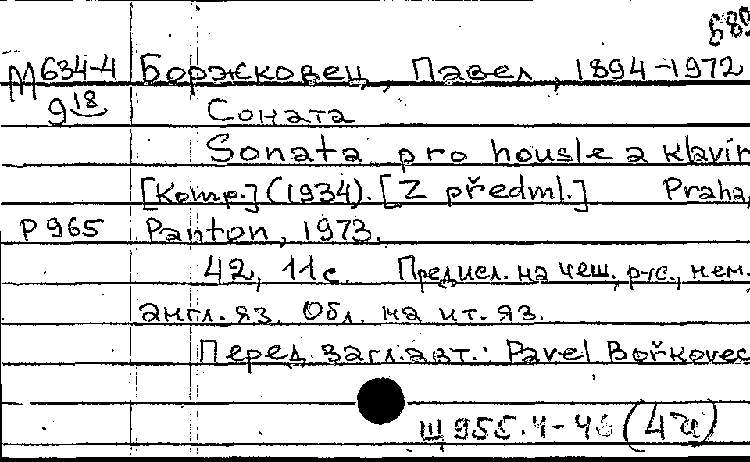 М 634-4 Боржковец, Павел, 1894-1972
9 18 Соната
Sonata pro housle a klavír
[Komp.] (1934). [Z předml.] Praha,
P 965 Panton, 1973.
42, 11 с. Предисл. на чеш., рус., нем.,
англ. яз. Обл. на ит. яз.
Перед загл. авт.: Pavel Bořkovec
Щ 955.4-4 (4Ч)